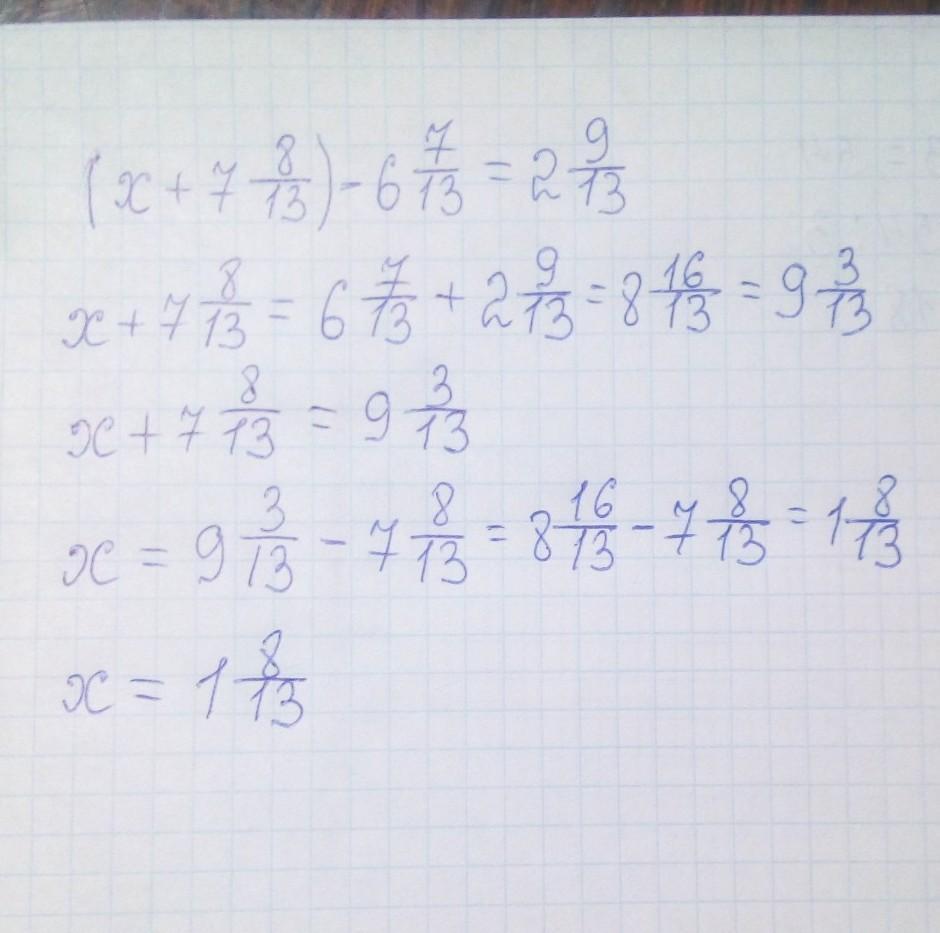 (x + 7 8/13) - 6 7/13 = 2 9/13
x + 7 8/13 = 6 7/13 + 2 9/13 = 8 16/13 = 9 3/13
x + 7 8/13 = 9 3/13
x = 9 3/13 - 7 8/13 = 8 16/13 - 7 8/13 = 1 8/13
x = 1 8/13